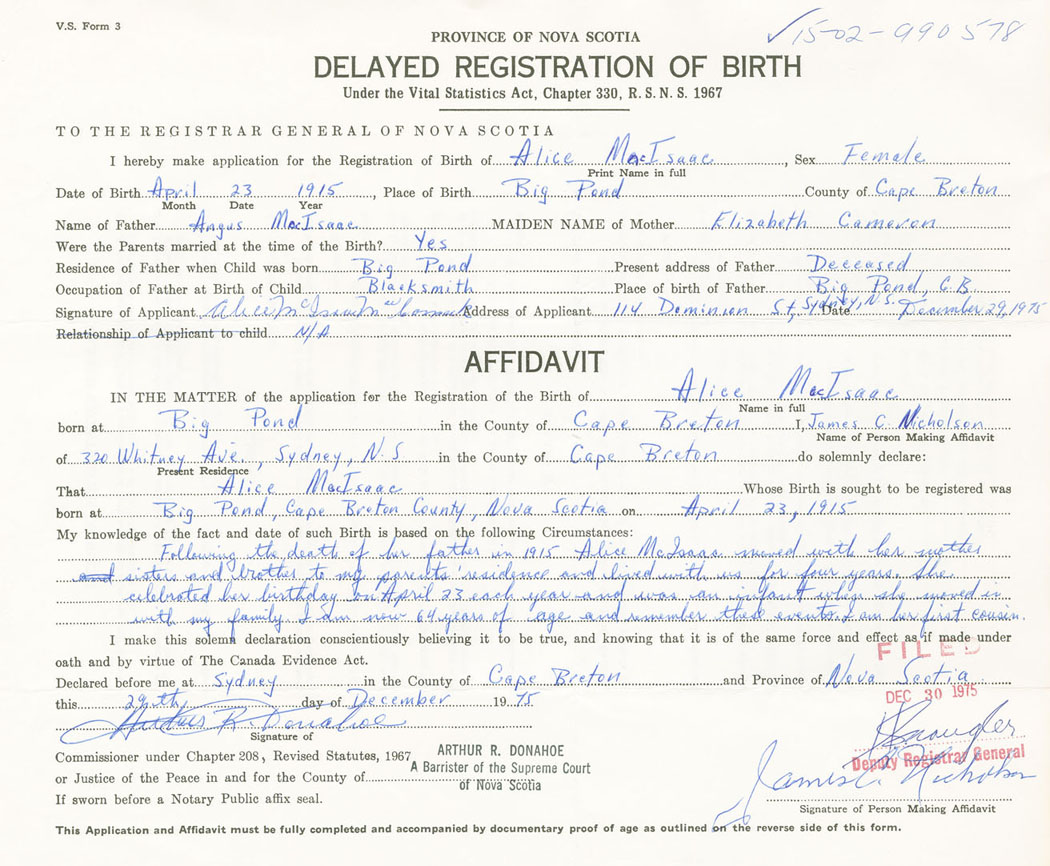 V.S. Form 3
✓15-02-990578
PROVINCE OF NOVA SCOTIA
DELAYED REGISTRATION OF BIRTH
Under the Vital Statistics Act, Chapter 330, R.S.N.S. 1967
TO THE REGISTRAR GENERAL OF NOVA SCOTIA
I hereby make application for the Registration of Birth of Alice MacIsaac, Sex Female
Print Name in full
Date of Birth April 23 1915, Place of Birth Big Pond County of Cape Breton
Month Date Year
Name of Father Angus MacIsaac MAIDEN NAME of Mother Elizabeth Cameron
Were the Parents married at the time of the Birth? Yes
Residence of Father when Child was born Big Pond Present address of Father Deceased
Occupation of Father at Birth of Child Blacksmith Place of birth of Father Big Pond, C.B.
Signature of Applicant Alice Address of Applicant 114 Dominion St, Sydney, N.S. Date December 29, 1975
Relationship of Applicant to child N/A
AFFIDAVIT
IN THE MATTER of the application for the Registration of the Birth of Alice MacIsaac
Name in full
born at Big Pond in the County of Cape Breton I, James C. Nicholson
Name of Person Making Affidavit
of 320 Whitney Ave., Sydney, N.S in the County of Cape Breton do solemnly declare:
Present Residence
That Alice MacIsaac Whose Birth is sought to be registered was
born at Big Pond, Cape Breton County, Nova Scotia on April 23, 1915
My knowledge of the fact and date of such Birth is based on the following Circumstances:
Following the death of her father in 1915 Alice McIsaac moved with her mother
and sisters and brother to my parents' residence and lived with us for four years. She
celebrated her birthday on April 23 each year and was an infant when she moved in
with my family. I am now 64 years of age and remember these events. I am her first cousin.
I make this solemn declaration conscientiously believing it to be true, and knowing that it is of the same force and effect as if made under
oath and by virtue of The Canada Evidence Act.
FILED
Declared before me at Sydney in the County of Cape Breton and Province of Nova Scotia
DEC 30 1975
this 29th day of December 1975
Arthur R. Donahoe
Signature of
Commissioner under Chapter 208, Revised Statutes, 1967
or Justice of the Peace in and for the County of
If sworn before a Notary Public affix seal.
ARTHUR R. DONAHOE
A Barrister of the Supreme Court
of Nova Scotia
Deputy Registrar General
James C. Nicholson
Signature of Person Making Affidavit
This Application and Affidavit must be fully completed and accompanied by documentary proof of age as outlined on the reverse side of this form.